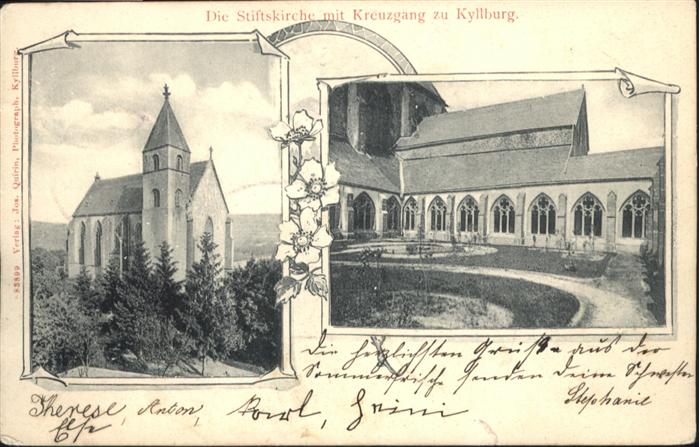 Die Stiftskirche mit Kreuzgang zu Kyllburg.
83899 Verlag: Jos. Quirin, Photograph, Kyllburg.
Die herzlichsten Grüße aus der
Sommerfrische senden Deine Schwester
Stephanie
Therese, Anton, Karl,
Else